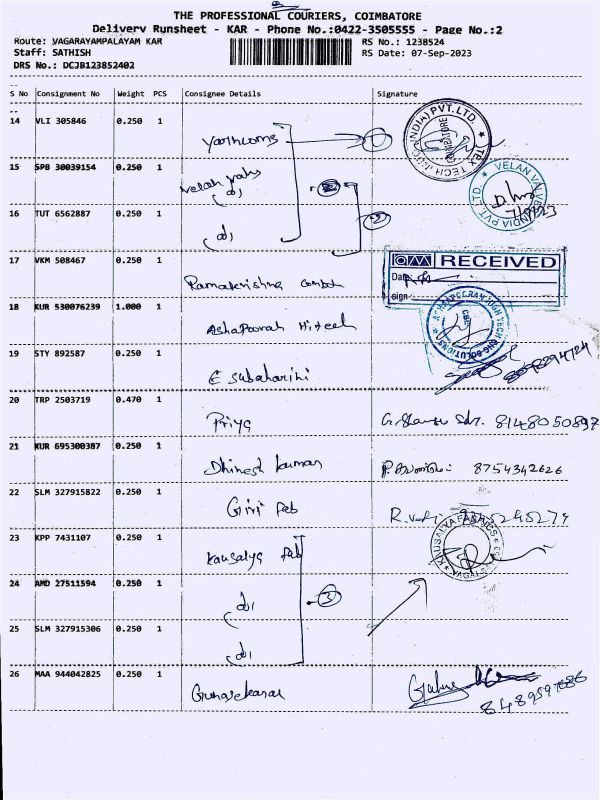 THE PROFESSIONAL COURIERS, COIMBATORE
Delivery Runsheet - KAR - Phone No.:0422-3505555 - Page No.:2
Route: VAGARAYAMPALAYAM KAR
RS No.: 1238524
Staff: SATHISH
RS Date: 07-Sep-2023
DRS No.: DCJB123852402
S No Consignment No Weight PCS Consignee Details Signature
14 VLI 305846 0.250 1
15 SPB 30039154 0.250 1
velan valve
VELAN VALVE INDIA PVT. LTD.
16 TUT 6562887 0.250 1
17 VKM 508467 0.250 1
Ramakrishna
RECEIVED
Date
sign
18 KUR 530076239 1.000 1
Ashapoorah Hitech
19 STY 892587 0.250 1
E Subaharini
20 TRP 2503719 0.470 1
Priya
8148050897
21 KUR 695300387 0.250 1
Dhinesh kumar
8754342626
22 SLM 327915822 0.250 1
Giri feb
23 KPP 7431107 0.250 1
Kausalya feb
KAUSALYA FABRICS
24 AMD 27511594 0.250 1
3
25 SLM 327915306 0.250 1
26 MAA 944042825 0.250 1
Gunasekaran